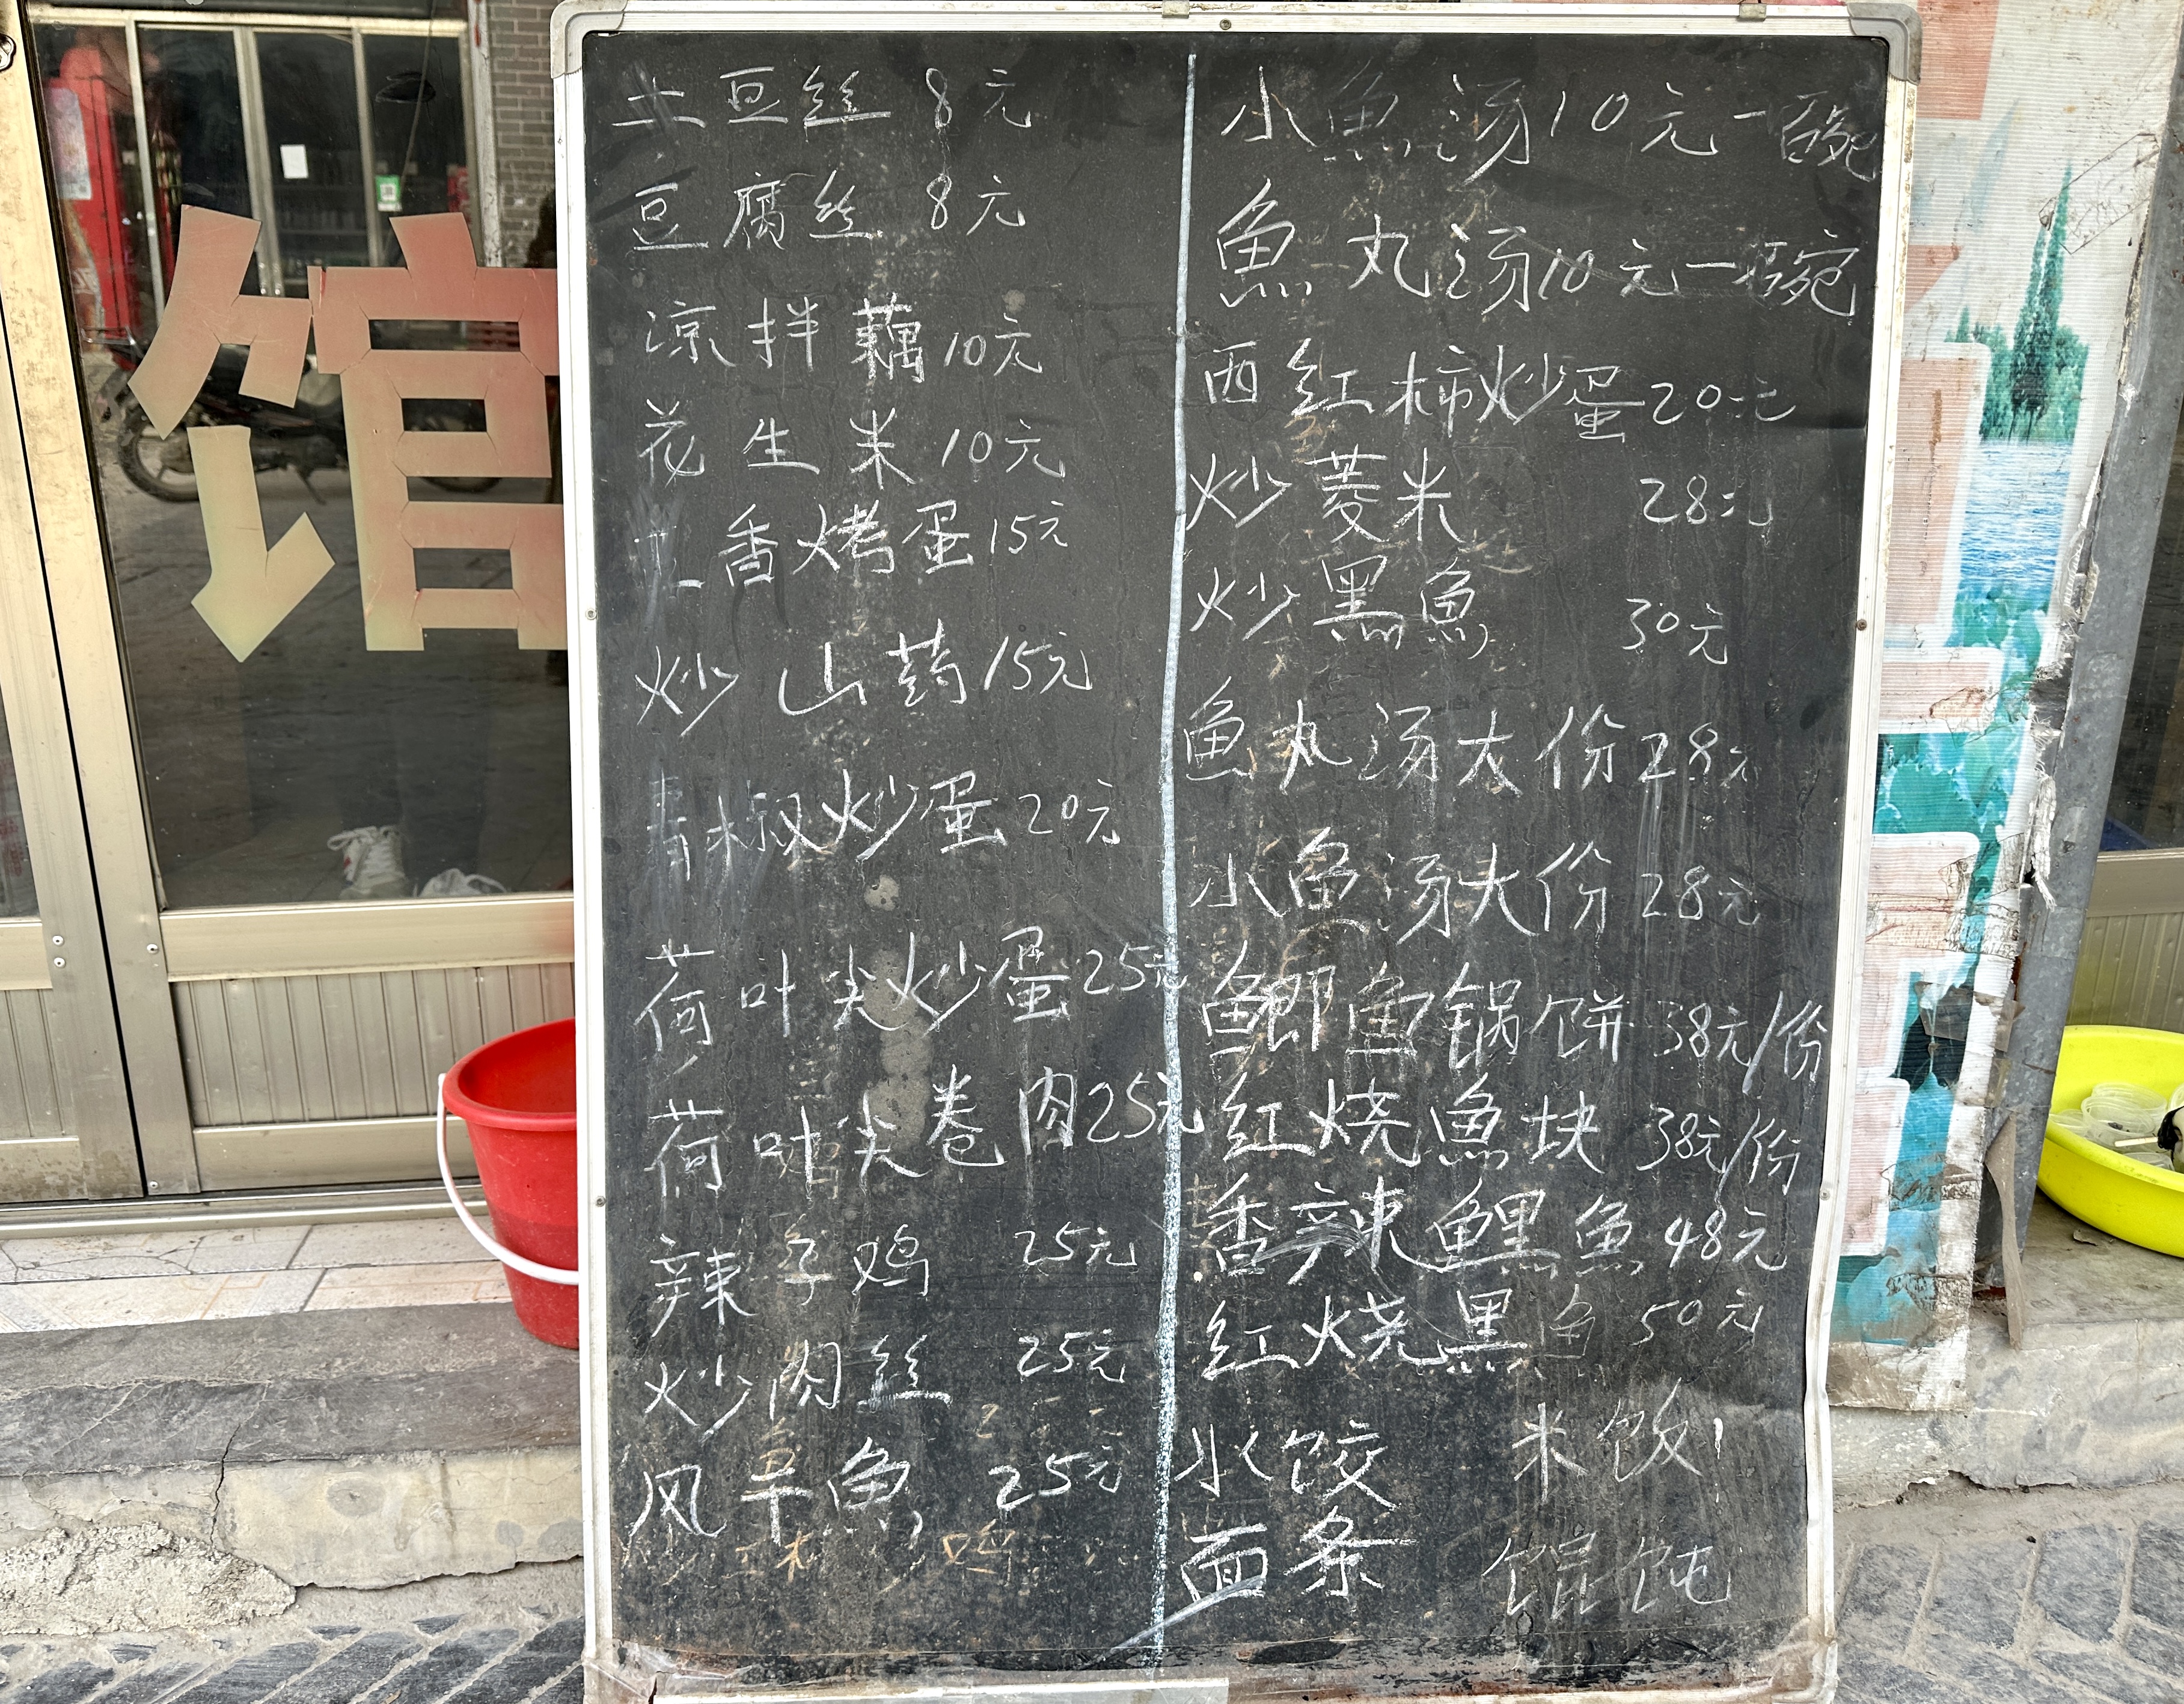 馆
土豆丝 8元
豆腐丝 8元
凉拌藕 10元
花生米 10元
五香烤蛋 15元
炒山药 15元
青椒炒蛋 20元
荷叶尖炒蛋 25元
荷叶尖卷肉 25元
辣子鸡 25元
炒肉丝 25元
风干魚 25元
小魚汤 10元一碗
魚丸汤 10元一碗
西红柿炒蛋 20元
炒菱米 28元
炒黑魚 30元
鱼丸汤大份 28元
小魚汤大份 28元
鲫魚锅饼 38元/份
红烧魚块 38元/份
香辣鲤魚 48元
红烧黑鱼 50元
水饺 米饭
面条 馄饨